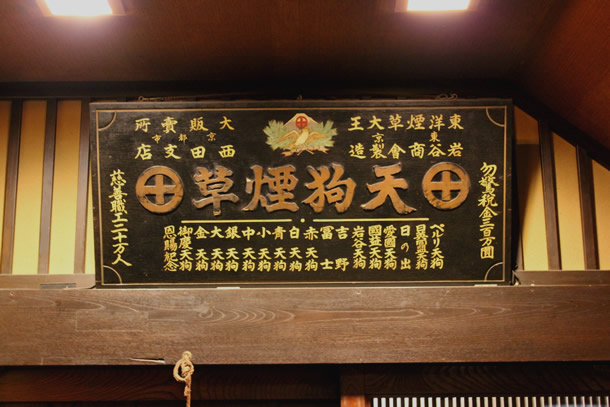 東洋煙草大王
東京
岩谷商會製造
大販賣所
京都市
西田支店
天狗煙草
勿驚税金三百万圓
慈善職工二十万人
ペルリ天狗
日の出
愛國天狗
國益天狗
岩谷天狗
吉野
冨士
赤天狗
白天狗
青天狗
小天狗
中天狗
銀天狗
大天狗
金天狗
御慶天狗
恩賜記念